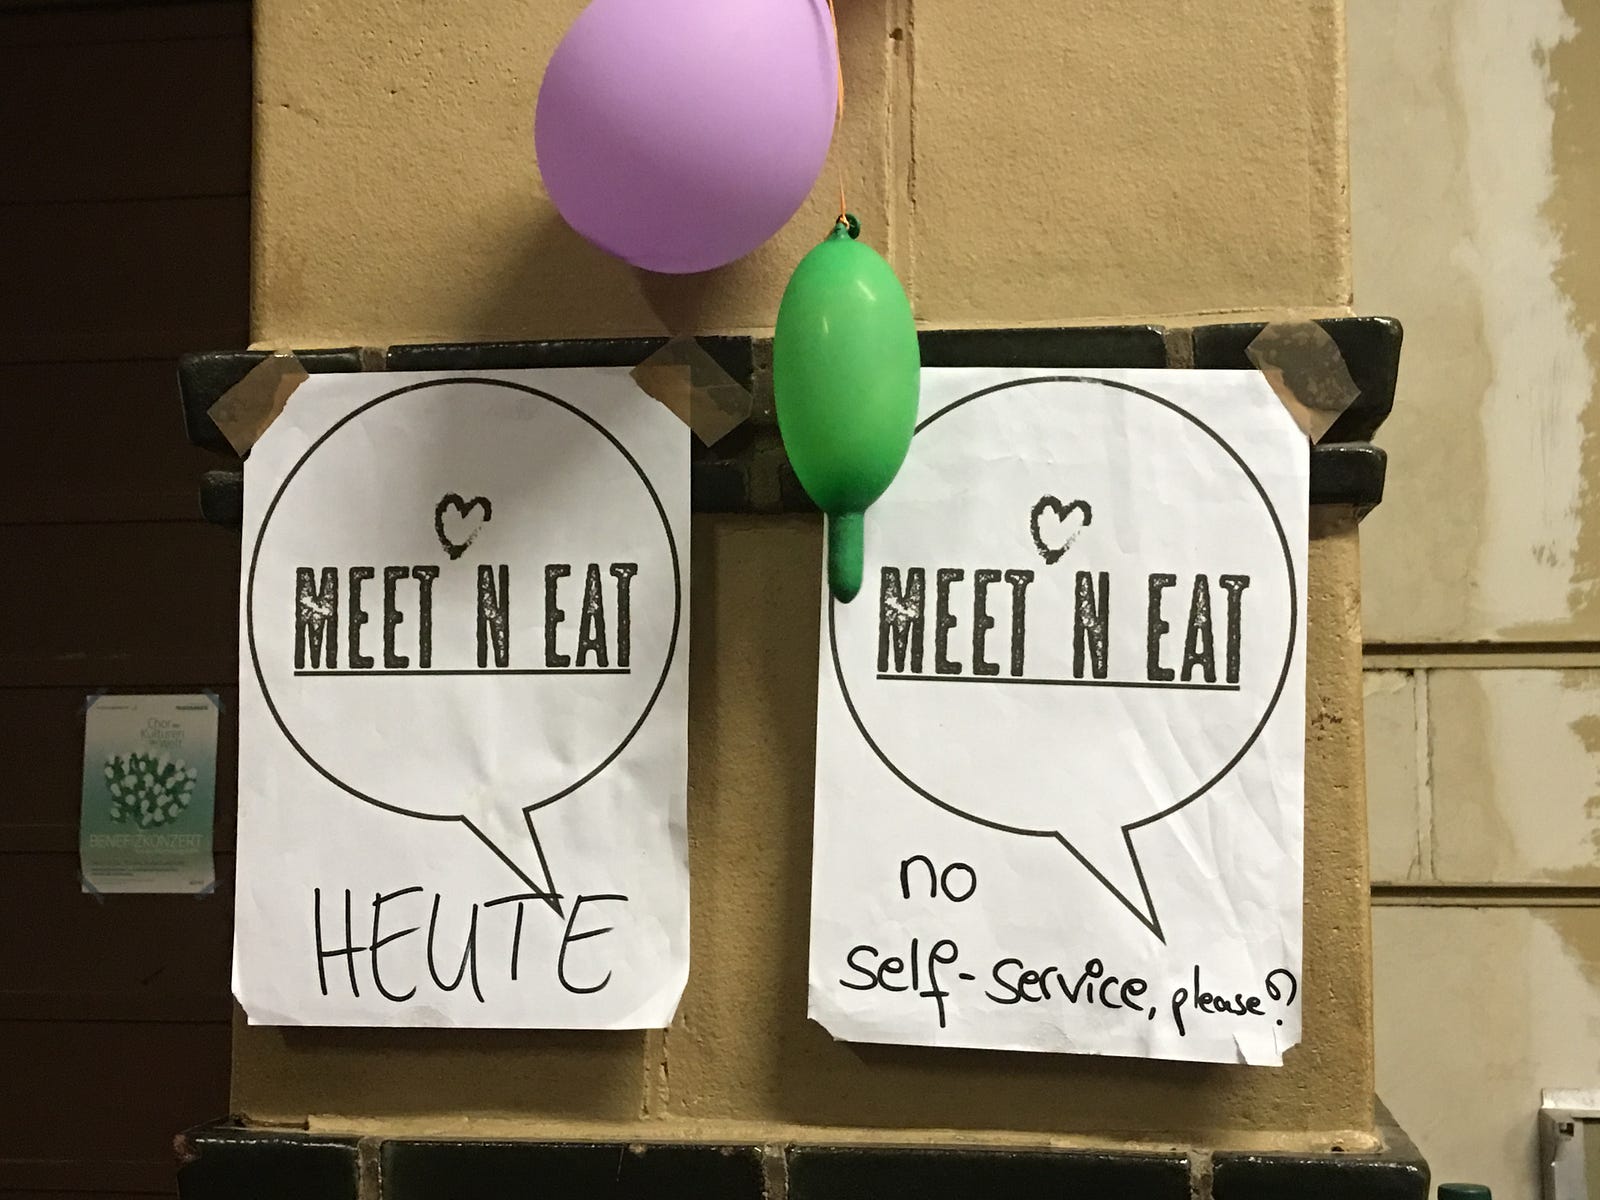 MEET N EAT
HEUTE
MEET N EAT
no
self-service, please?
Chor der
Kulturen
der Welt
BENEFIZKONZERT